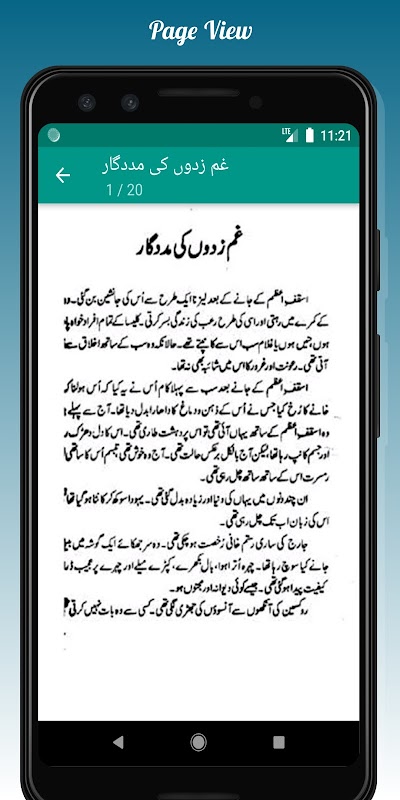 Page View
LTE 11:21
غم زدوں کی مددگار
1 / 20
غم زدوں کی مددگار
اسقفِ اعظم کے جانے کے بعد لیزنا ایک طرح سے اُس کی جانشین بن گئی۔ وہ
کے کمرے میں رہتی اور اسی کی طرح رعب کی زندگی بسر کرتی۔ کلیسا کے تمام افراد خواہ پا
ہوں، جنیں ہوں یا غلام سب اس سے کانپتے تھے۔ حالانکہ وہ سب کے ساتھ اخلاق سے
آتی تھی۔ رعونت اور غرور کا اس میں شائبہ بھی نہ تھا۔
اسقفِ اعظم کے جانے کے بعد سب سے پہلا کام اُس نے یہ کیا کہ اُس ہولناک
خانے کا رُخ کیا جس نے اُس کے ذہن و دماغ کا دھارا بدل دیا تھا۔ آج سے پہلے
وہ اسقفِ اعظم کے ساتھ یہاں آئی تھی تو اس پر دہشت طاری تھی۔ اس کا دل دھڑک ر
اور جسم کانپ رہا تھا، لیکن آج بالکل برعکس حالت تھی۔ آج وہ خوش تھی، تبسم اُس کا ساتھی
مسرت اس کے ساتھ ساتھ چل رہی تھی۔
ان چند دنوں میں یہاں کی دنیا اور زیادہ بدل گئی تھی۔ یہودا سوکھ کر کانٹا ہو گیا
اس کی زبان اب تک چل رہی تھی۔
جارج کی ساری رستم خانی رُخصت ہو چکی تھی۔ وہ سر جھکائے ایک گوشہ میں بیٹا
جانے کیا سوچ رہا تھا۔ چہرہ اُترا ہوا، بال بکھرے، کپڑے میلے اور چہرے پر عجیب
کیفیت پیدا ہو گئی تھی۔ جیسے کوئی دیوانہ اور مجنوں ہو۔
روکسین کی آنکھوں سے آنسوؤں کی جھڑی لگی تھی۔ کسی سے وہ بات نہیں کرتی